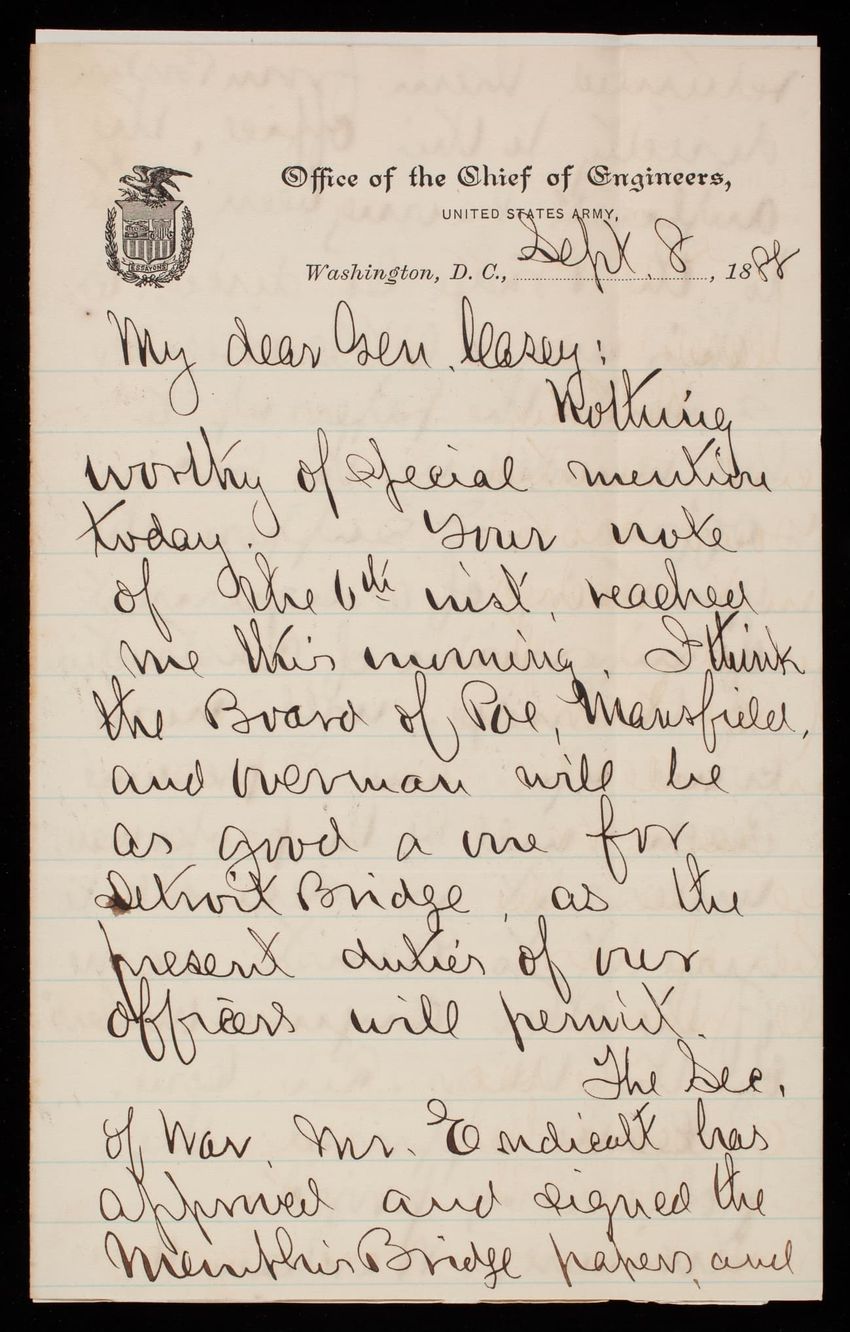 ESSAYONS
Office of the Chief of Engineers,
UNITED STATES ARMY,
Washington, D. C., Sept. 8, 1888
My dear Gen. Casey:
Nothing
worthy of special mention
today. Your note
of the 6th inst, reached
me this morning. I think
the Board of Poe, Mansfield,
and Overman will be
as good a one for
Detroit Bridge, as the
present duties of our
officers will permit.
The Sec.
of War, Mr. Endicott has
approved and signed the
Memphis Bridge papers, and